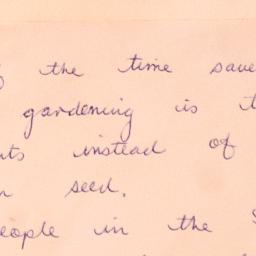 the time save
gardening is
instead of
seed.
in the